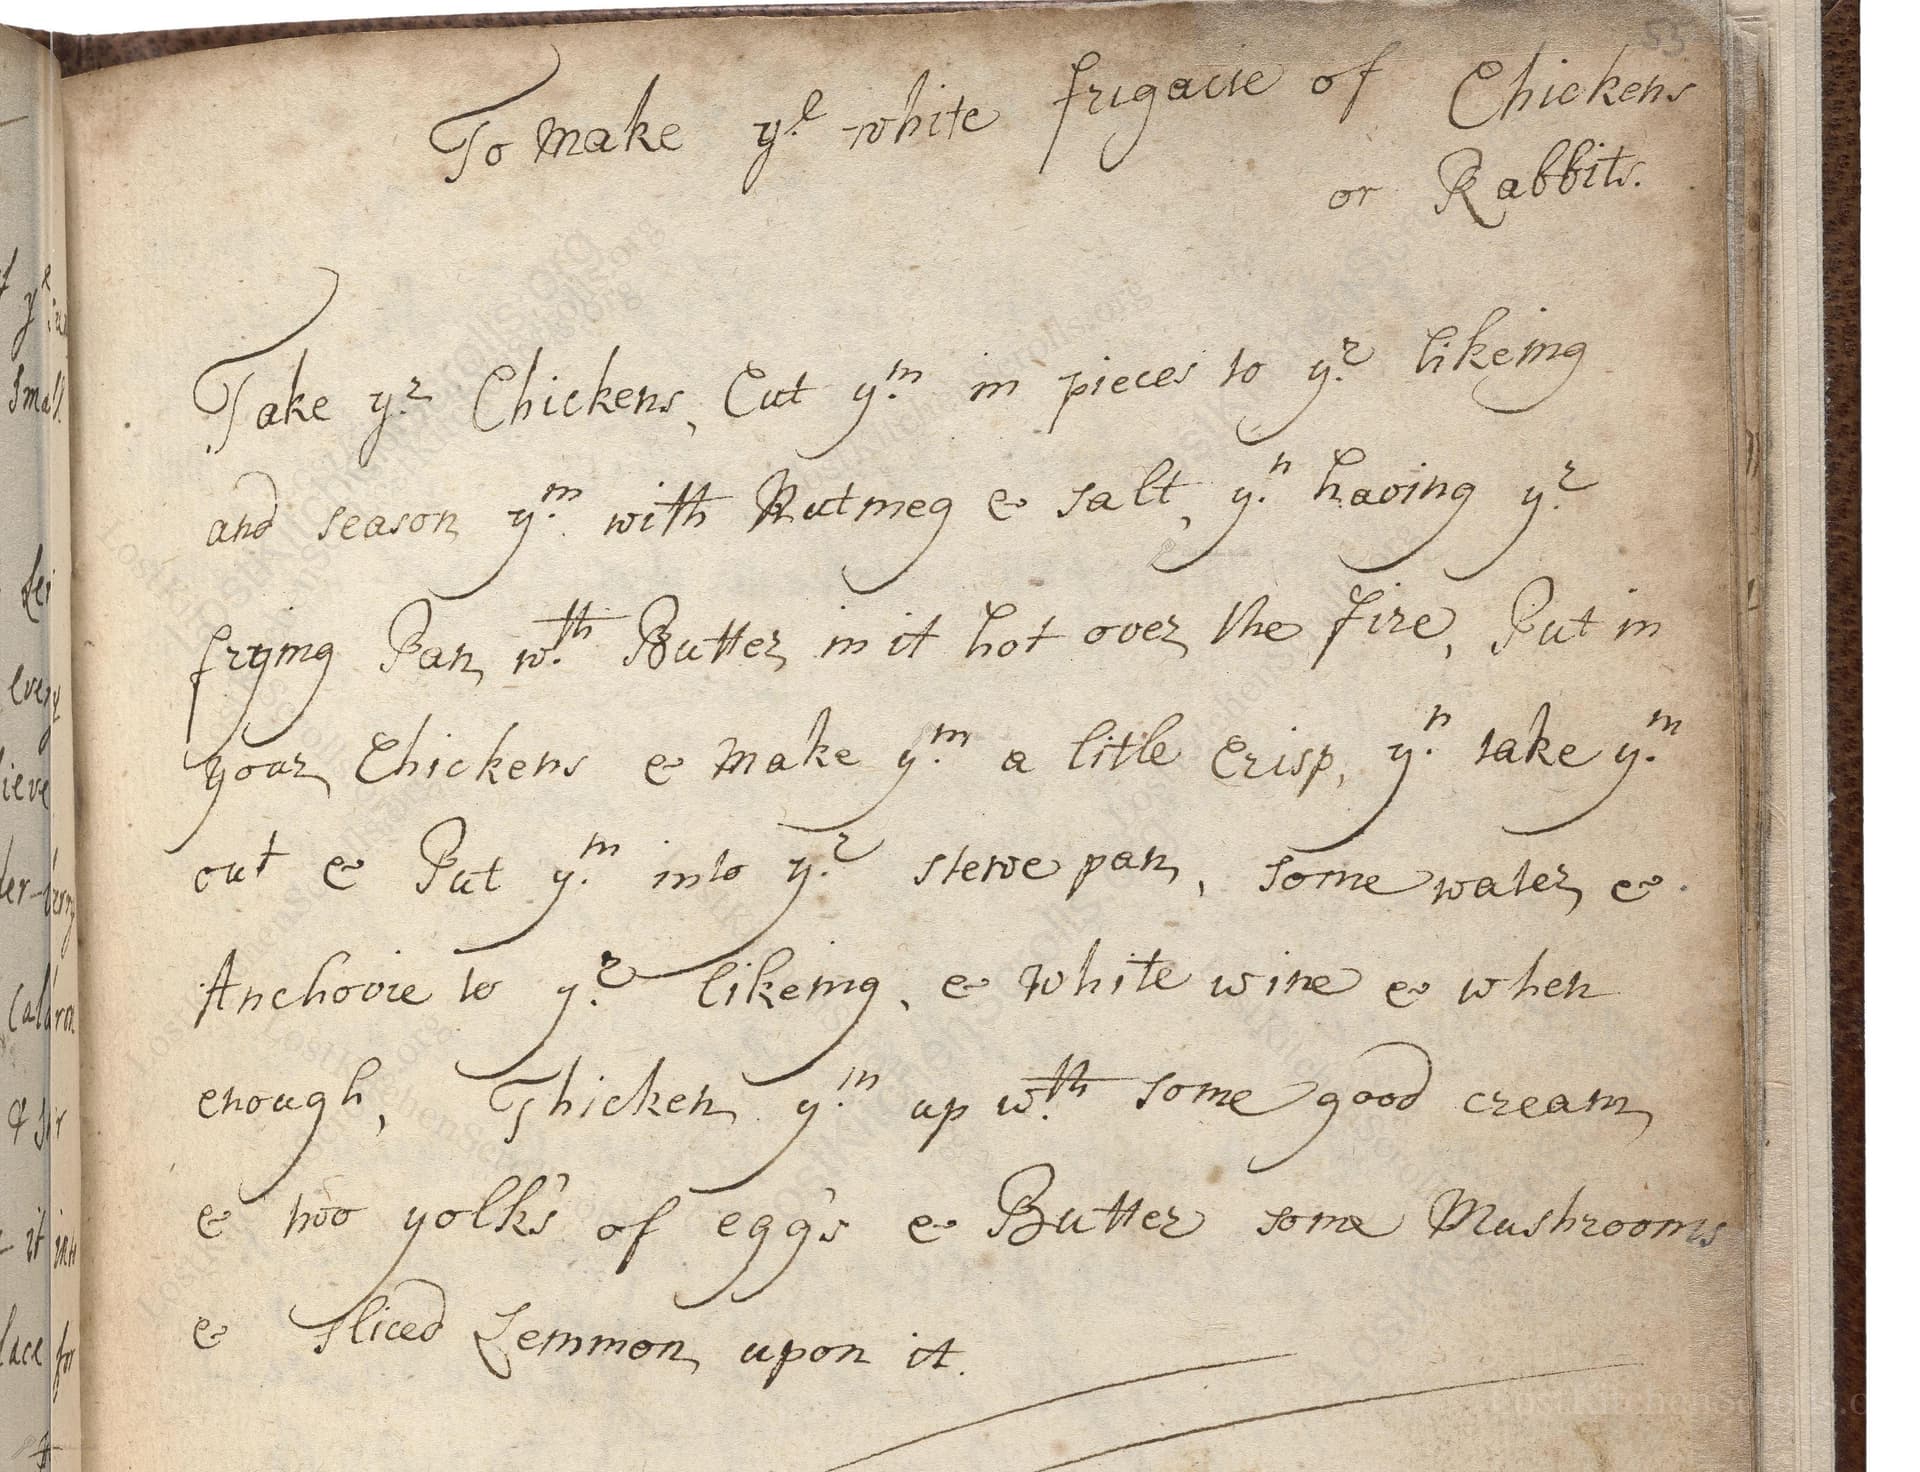 53
To make y.e white frigacie of Chickens
or Rabbits.
Take y.r Chickens, Cut y.m in pieces to y.r likeing
and season y.m with Nutmeg & salt, y.n having y.r
frying Pan w.th Butter in it hot over the fire, Put in
your Chickens & make y.m a litle Crisp, y.n take y.m
out & Put y.m into y.r stewe pan, some water &
Anchovie to y.r likeing, & white wine & when
enough, Thicken y.m up w.th some good cream
& two yolk's of egg's & Butter some Mushrooms
& sliced Lemmon upon it.
LostKitchenScrolls.org